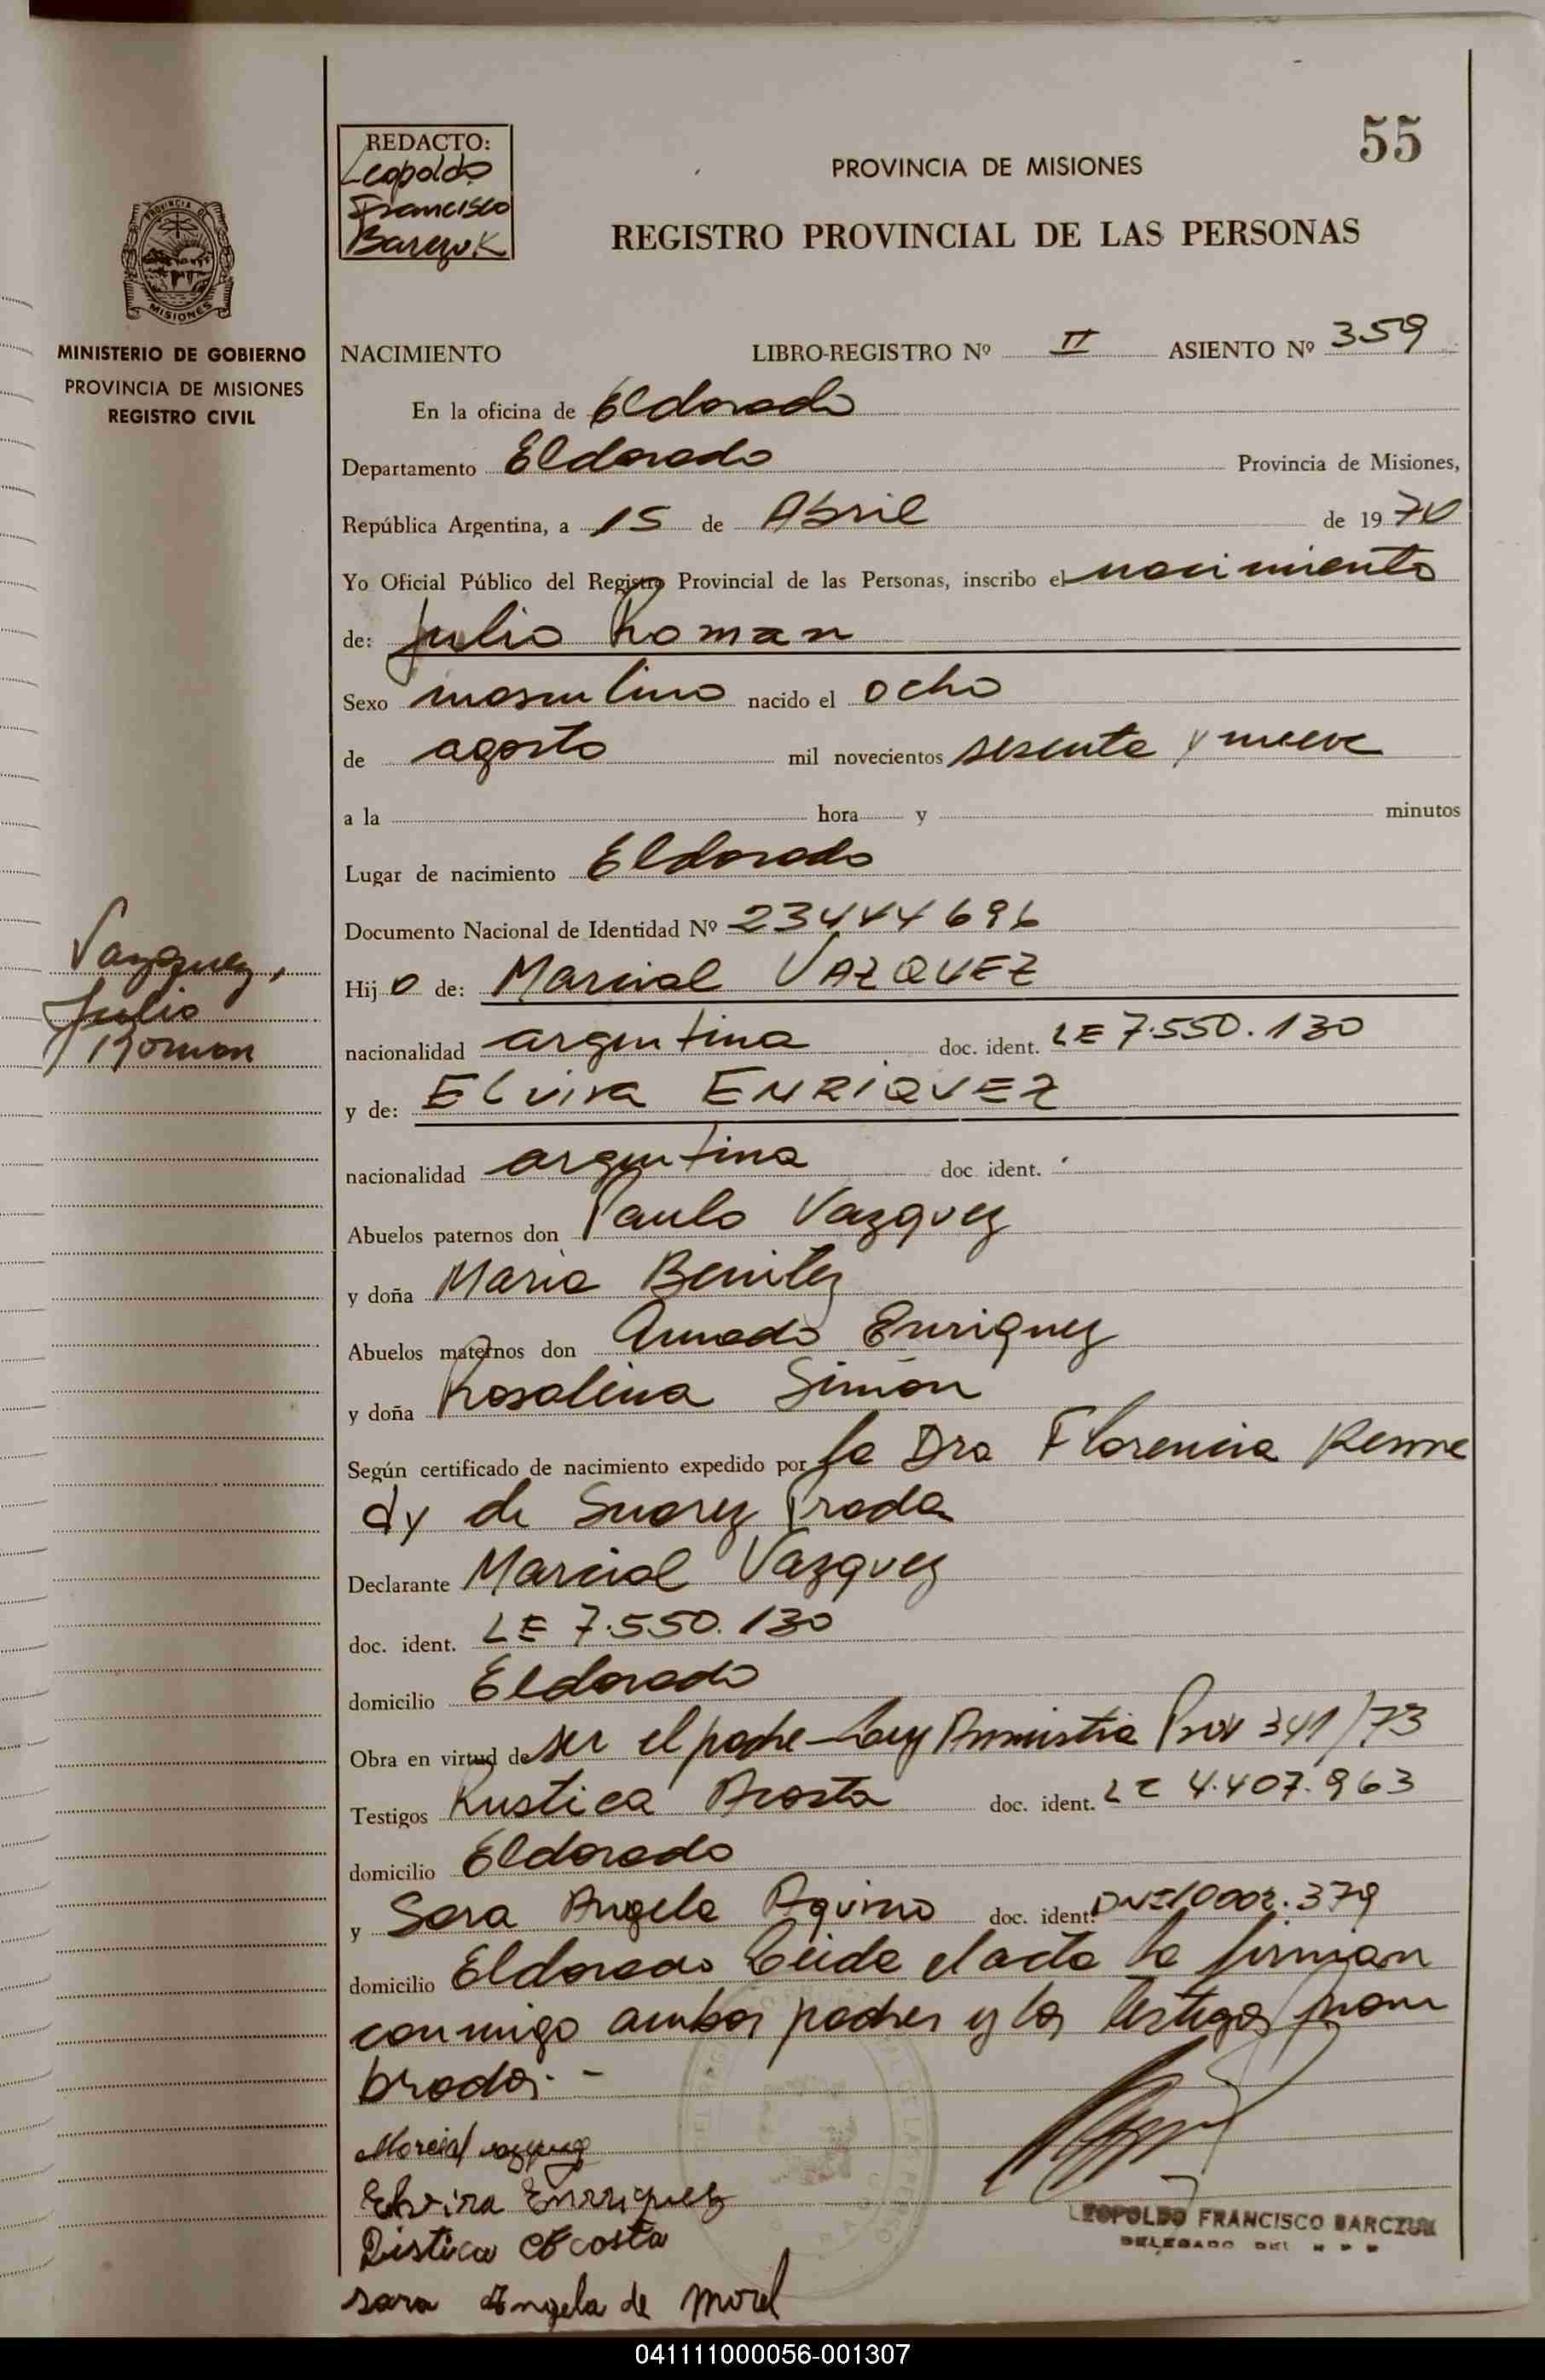 55
REDACTO:
Leopoldo
Francisco
Barczuk
PROVINCIA DE MISIONES
REGISTRO PROVINCIAL DE LAS PERSONAS
PROVINCIA DE
MISIONES
MINISTERIO DE GOBIERNO
PROVINCIA DE MISIONES
REGISTRO CIVIL
NACIMIENTO LIBRO-REGISTRO Nº II ASIENTO Nº 359
En la oficina de Eldorado
Departamento Eldorado Provincia de Misiones,
República Argentina, a 15 de Abril de 1970
Yo Oficial Público del Registro Provincial de las Personas, inscribo el nacimiento
de: Julio Roman
Sexo masculino nacido el ocho
de agosto mil novecientos sesenta y nueve
a la hora y minutos
Lugar de nacimiento Eldorado
Documento Nacional de Identidad Nº 23444696
Vazquez,
Julio
Roman
Hijo de: Marcial VAZQUEZ
nacionalidad argentina doc. ident. LE 7.550.130
y de: Elvira ENRIQUEZ
nacionalidad argentina doc. ident.
Abuelos paternos don Paulo Vazquez
y doña Maria Benitez
Abuelos maternos don Amado Enriquez
y doña Rosalina Simón
Según certificado de nacimiento expedido por la Dra Florencia Kenne
dy de Suarez Prada
Declarante Marcial Vazquez
doc. ident. LE 7.550.130
domicilio Eldorado
Obra en virtud de ser el padre - Ley Amnistia Prov 341/73
Testigos Rustica Acosta doc. ident. LC 4.407.963
domicilio Eldorado
y Sara Angela Aquino doc. ident. DNI 10002.379
domicilio Eldorado Leida el acta la firman
conmigo ambos padres y los testigos nom
brados.-
Marcial vazquez
Elvira Enrriquez
Ristica Acosta
sara Angela de morel
LEOPOLDO FRANCISCO BARCZUK
DELEGADO DEL R P P
041111000056-001307